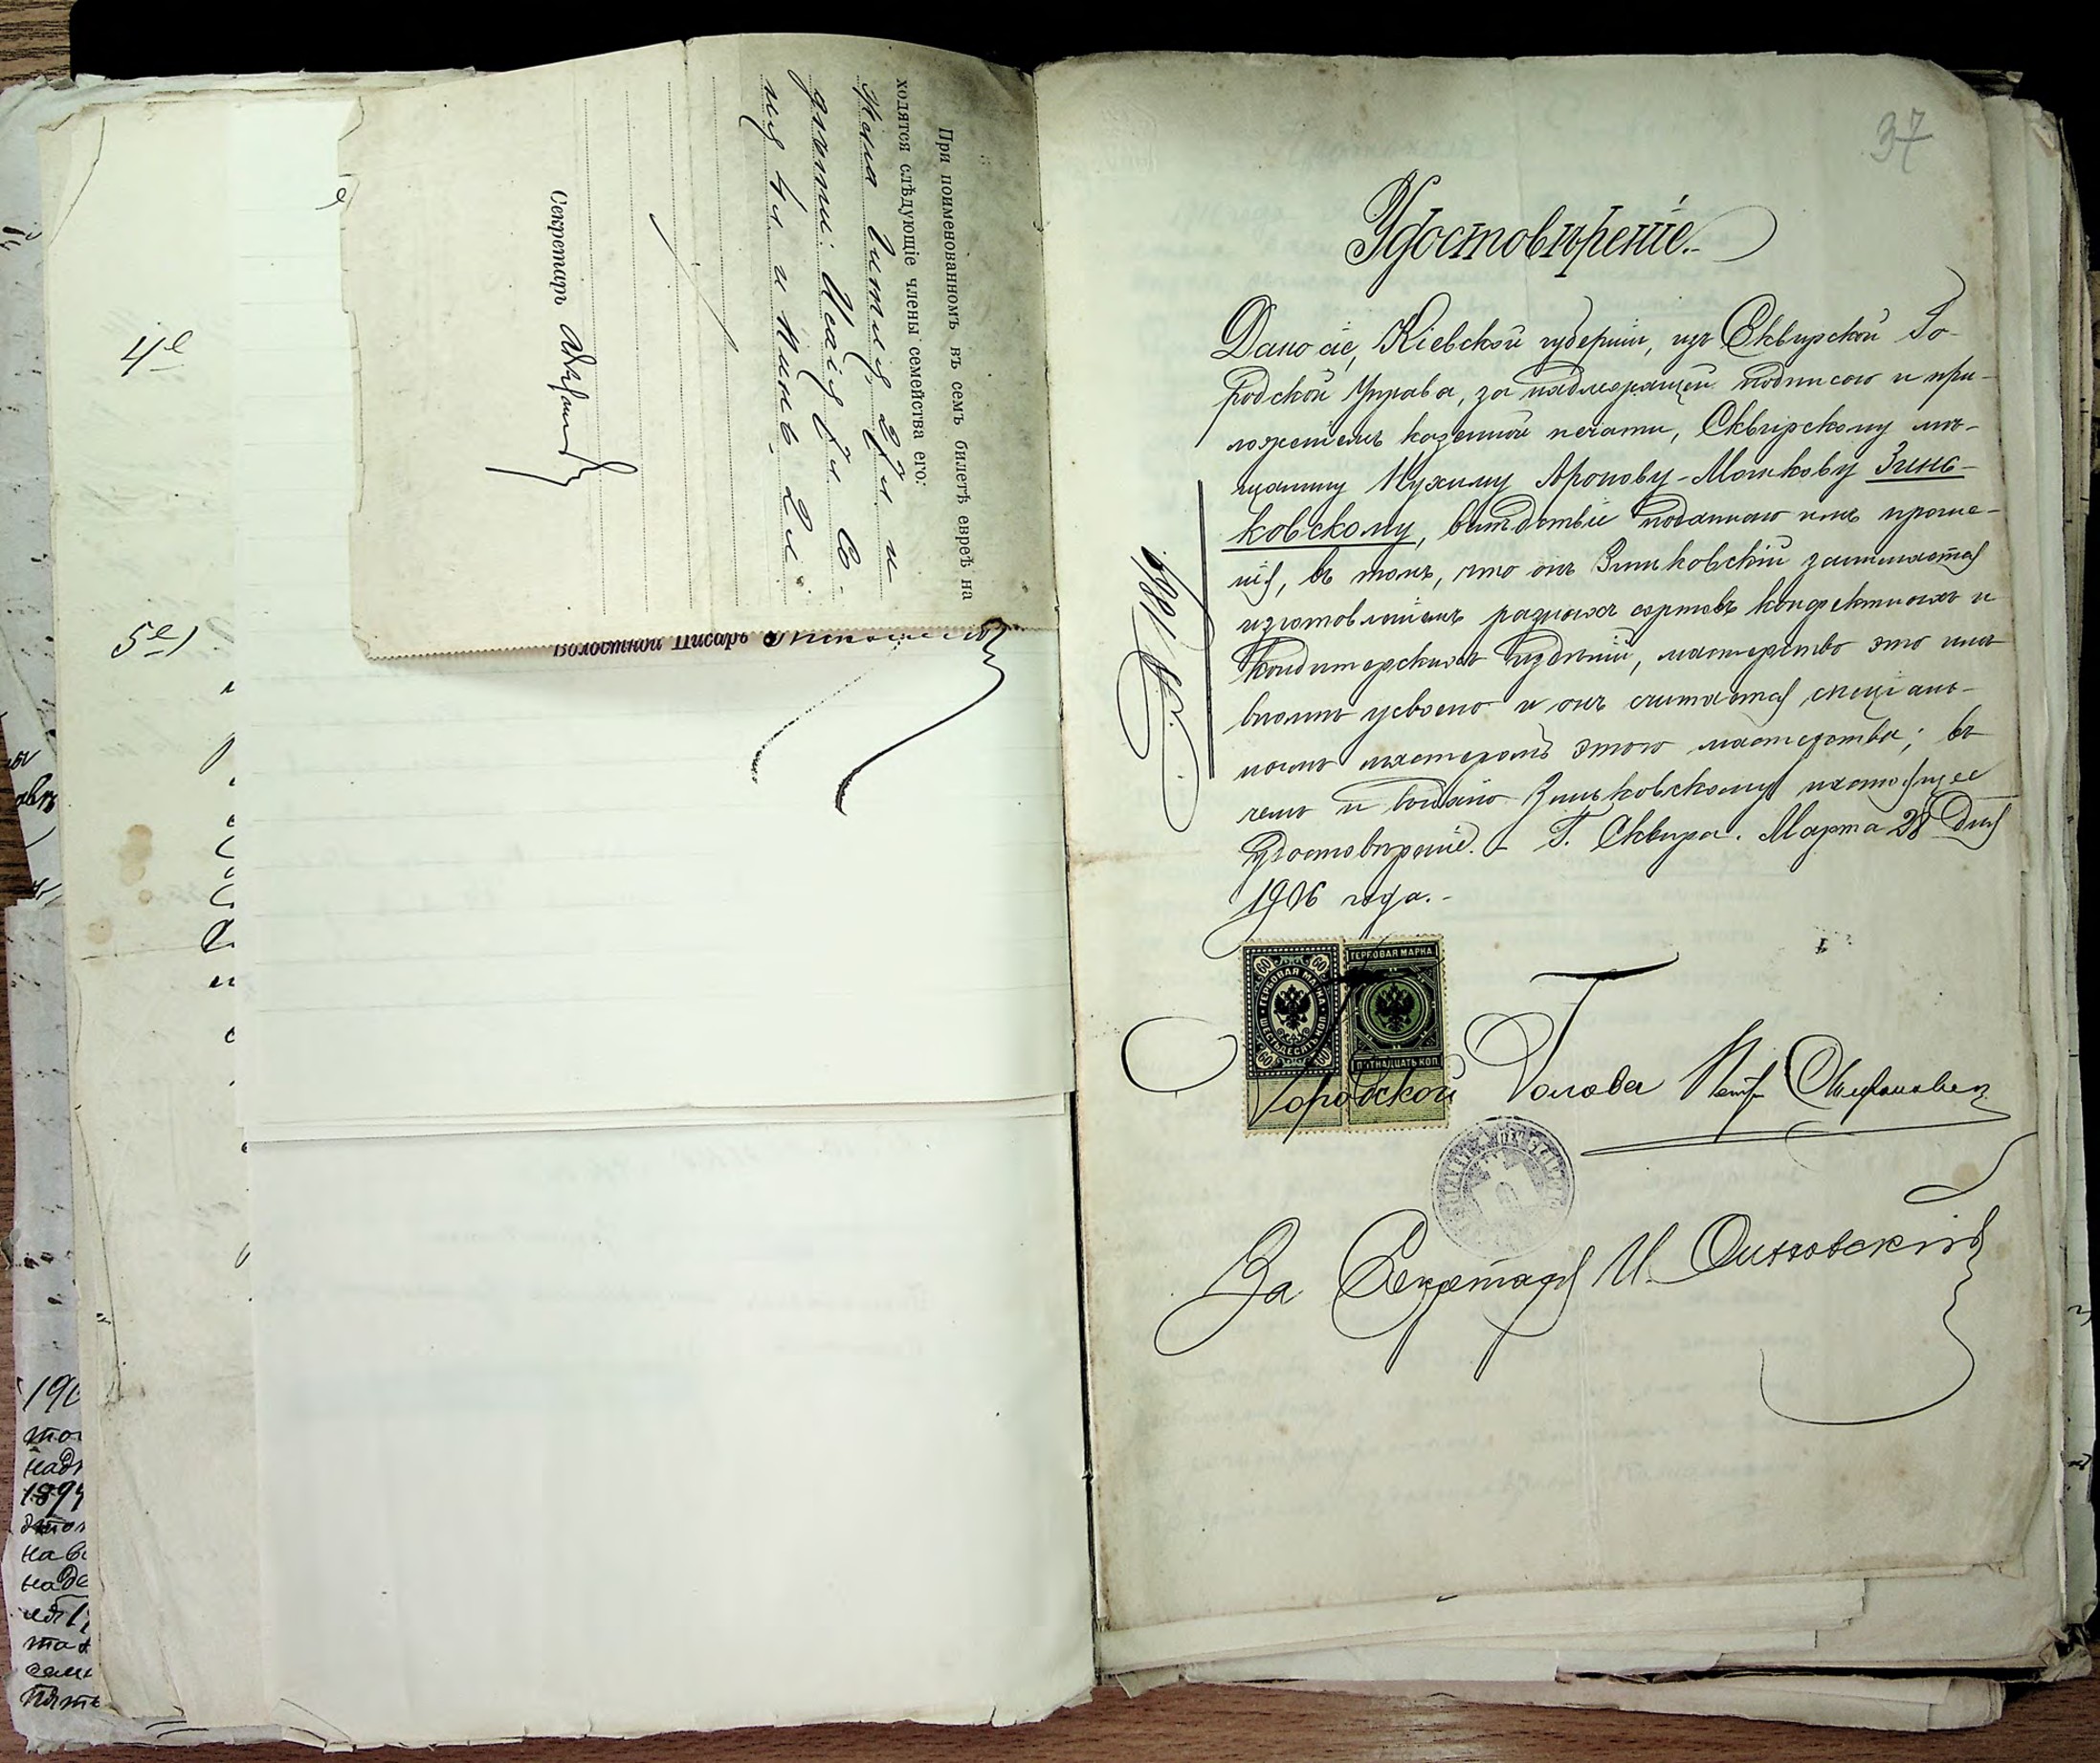 4е
5е)
При поименованномъ въ семъ билетѣ евреѣ на
ходятся слѣдующіе члены семейства его:
жена Гитля 28 л. и
дѣти: Исаія 8 л. Со-
ня 4 л. и Хинь 2 л.
Секретарь
Волостной Писарь
190
тог
надп
1894
этом
на во
наде
сем
пять
37
Удостовѣреніе.
Дано сіе, Кіевской губерніи, изъ Сквирской Го-
родской Управы, за надлежащей подписью и при-
ложеніемъ казенной печати, Сквирскому мѣ-
щанину Нухиму Аронову-Мошкову Зинь-
ковскому, вслѣдствіе поданнаго имъ проше-
нія, въ томъ, что онъ Зиньковскій занимается
изготовленіемъ разныхъ сортовъ конфектныхъ и
кондитерскихъ издѣлій, мастерство это имъ
вполнѣ усвоено и онъ считается спеціаль-
нымъ мастеромъ этого мастерства; въ
чемъ и выдано Зиньковскому настоящее
удостовѣреніе. - Г. Сквира. Марта 28 дня
1906 года. -
ГЕРБОВАЯ МАРКА
ШЕСТЬДЕСЯТЪ КОП.
60 60
60 60
ГЕРБОВАЯ МАРКА
ПЯТНАДЦАТЬ КОП.
Городской Голова Петр
За Секретаря И.